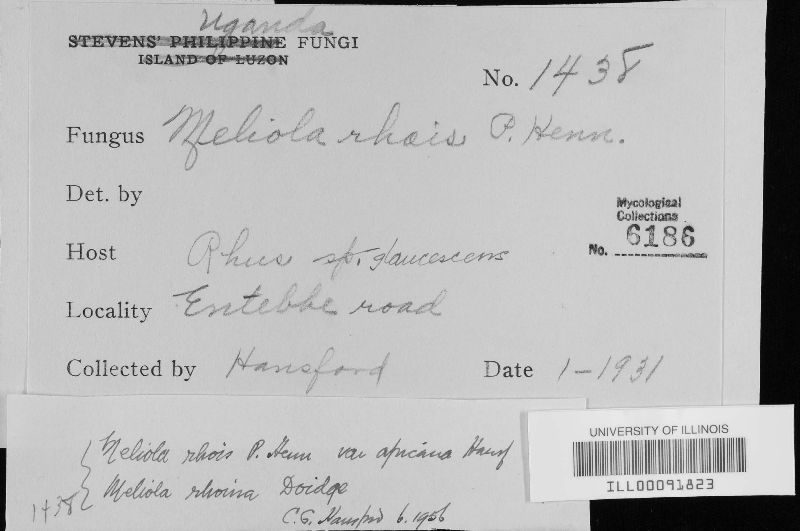 Uganda
STEVENS' PHILIPPINE FUNGI
ISLAND OF LUZON
No. 1438
Fungus Meliola rhois P. Henn.
Det. by
Mycological
Collections
No. 6186
Host Rhus sp. glaucescens
Locality Entebbe road
Collected by Hansford Date 1-1931
Meliola rhois P. Henn var africana Hansf
1438 { Meliola rhoina Doidge
C.G. Hansford 6.1956
UNIVERSITY OF ILLINOIS
ILL00091823